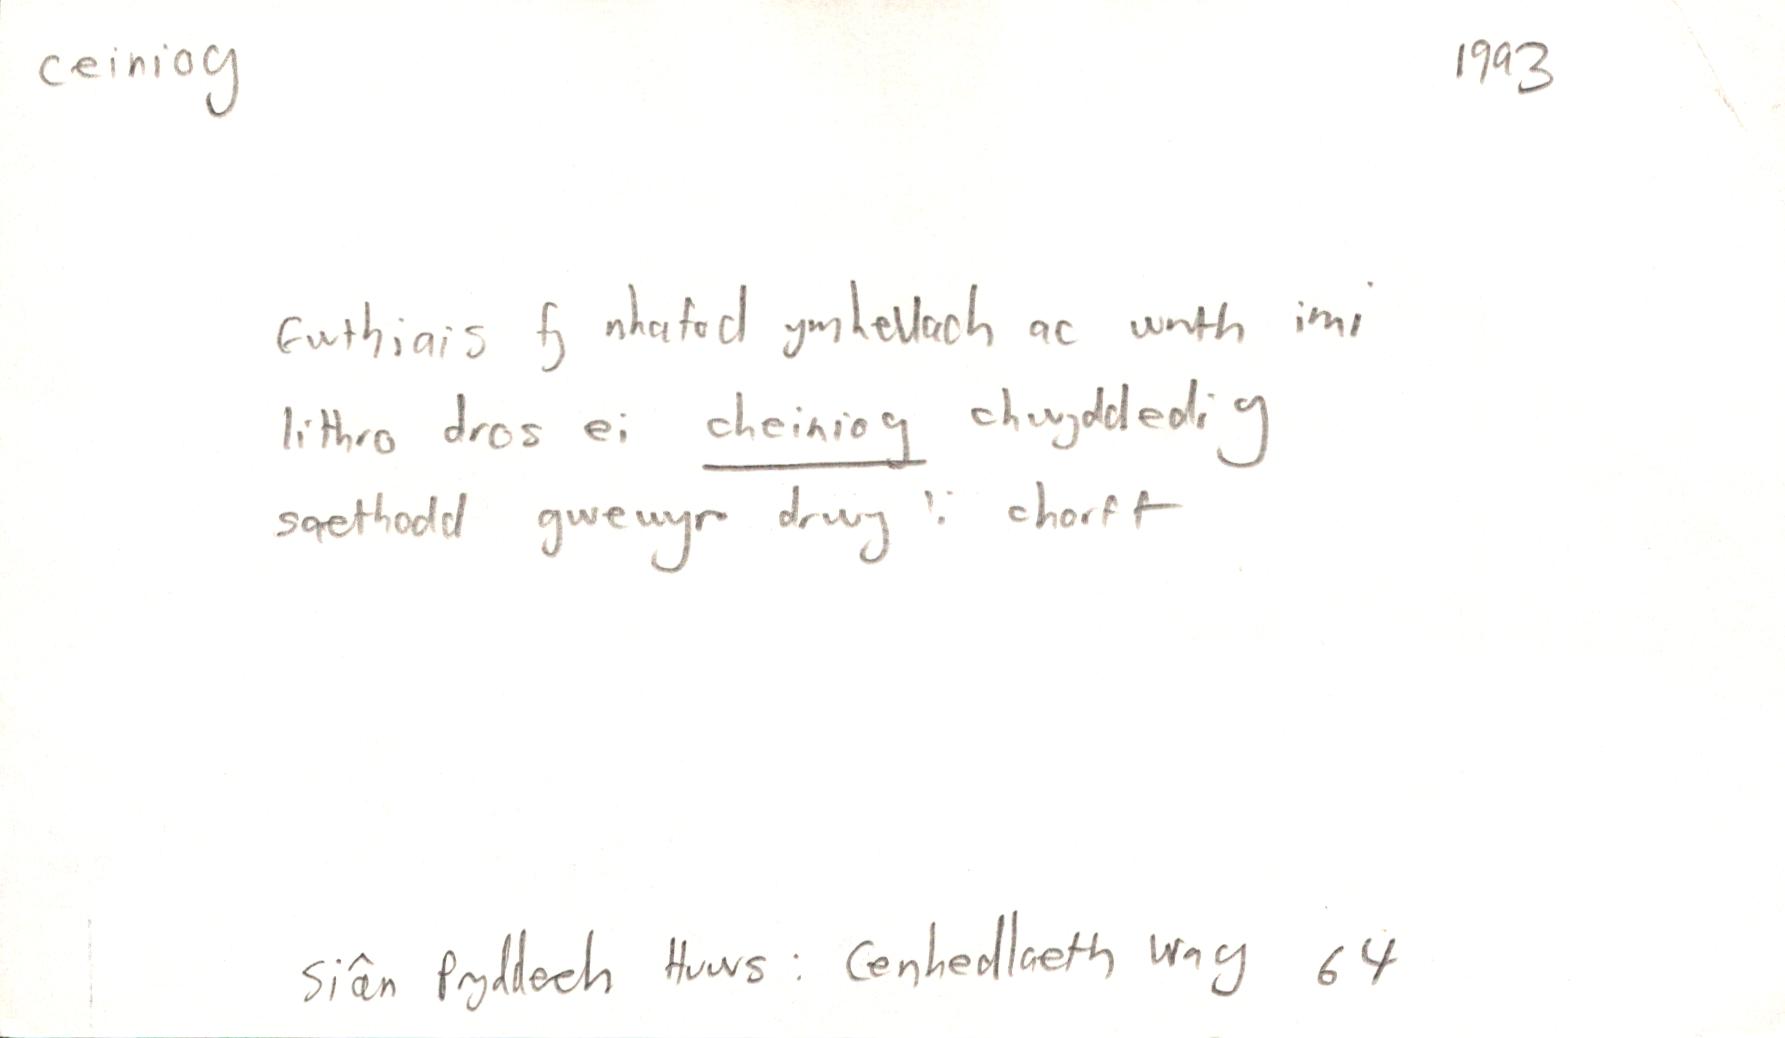 ceiniog 1993
Gwthiais fy nhafod ymhellach ac wrth imi
lithro dros ei cheiniog chwyddedig
saethodd gwewyr drwy 'i chorff
Siân Prydderch Huws : Cenhedlaeth Wag 64